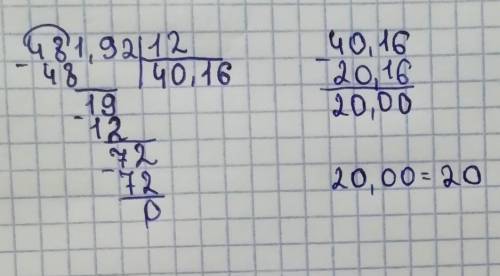 481,92 | 12
- 48 | 40,16
19
- 12
72
- 72
0
40,16
- 20,16
20,00
20,00 = 20